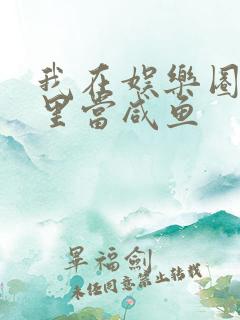 我在娱樂圈
里當咸鱼
草福劍
未经同意禁止转载